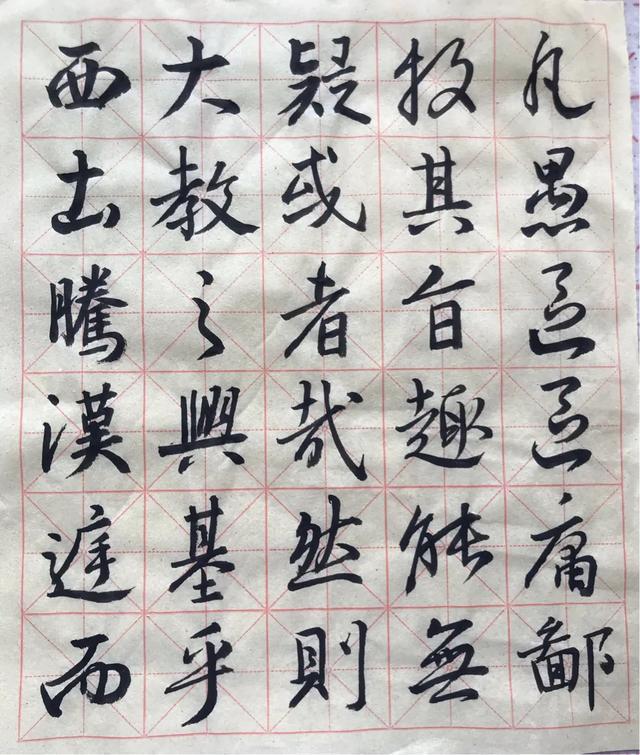 凡愚區區庸鄙
投其旨趣能無
疑或者哉然則
大教之興基乎
西土騰漢庭而